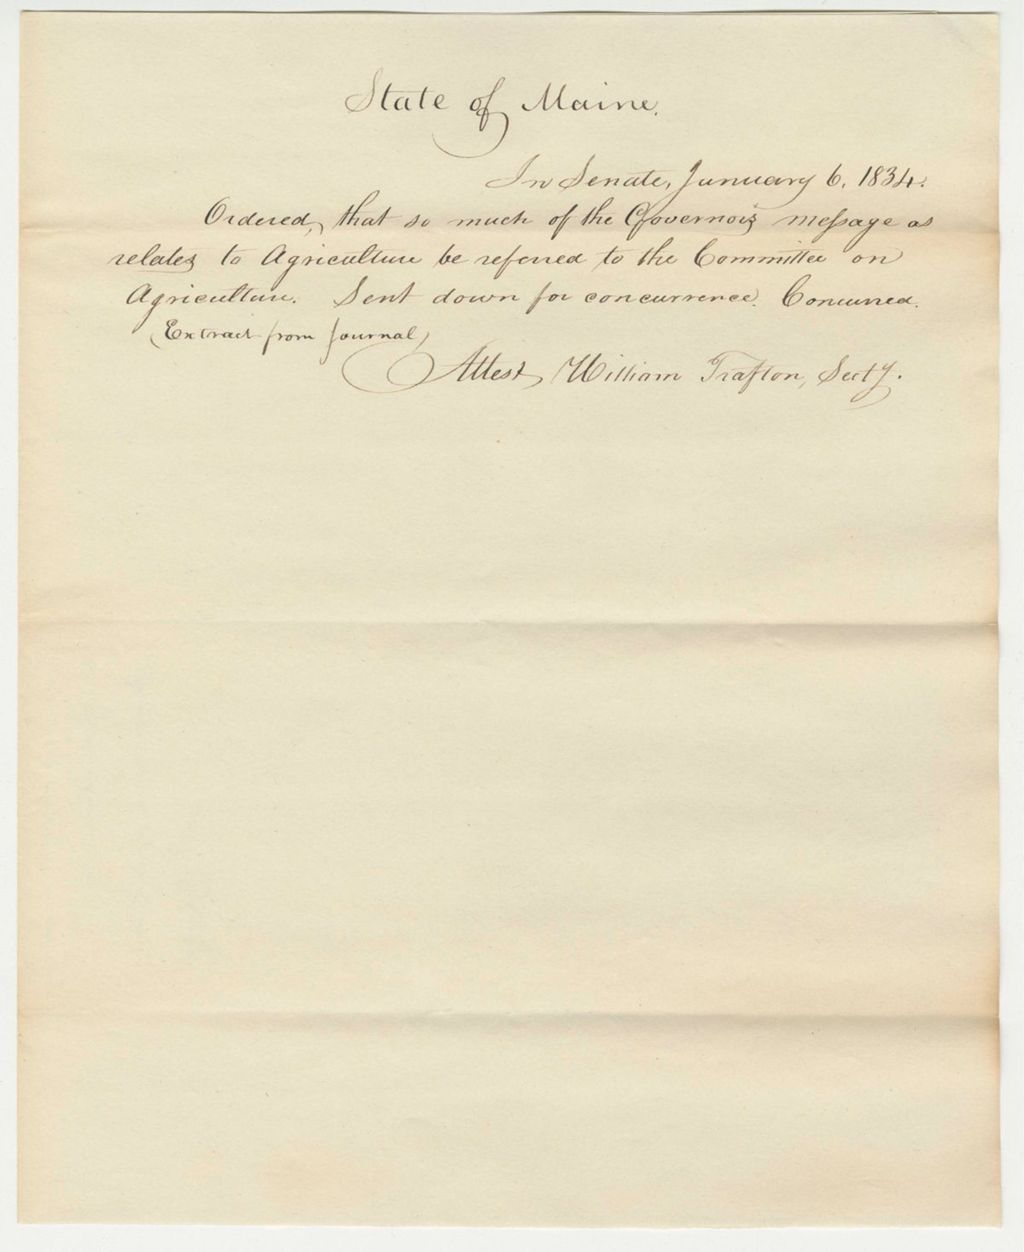 State of Maine.
In Senate, January 6, 1834.
Ordered, that so much of the Governors message as
relates to Agriculture be referred to the Committee on
Agriculture. Sent down for concurrence. Concurred.
(Extract from Journal,)
Attest, William Trafton, Secty.